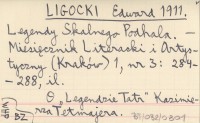 LIGOCKI Edward 1911.
Legendy Skalnego Podhala. —
Miesięcznik Literacki i Artys-
tyczny (Kraków) 1, nr 3: 284-
-288, il.
O „Legendzie Tatr" Kazimie-
rza Tetmajera.
BZ